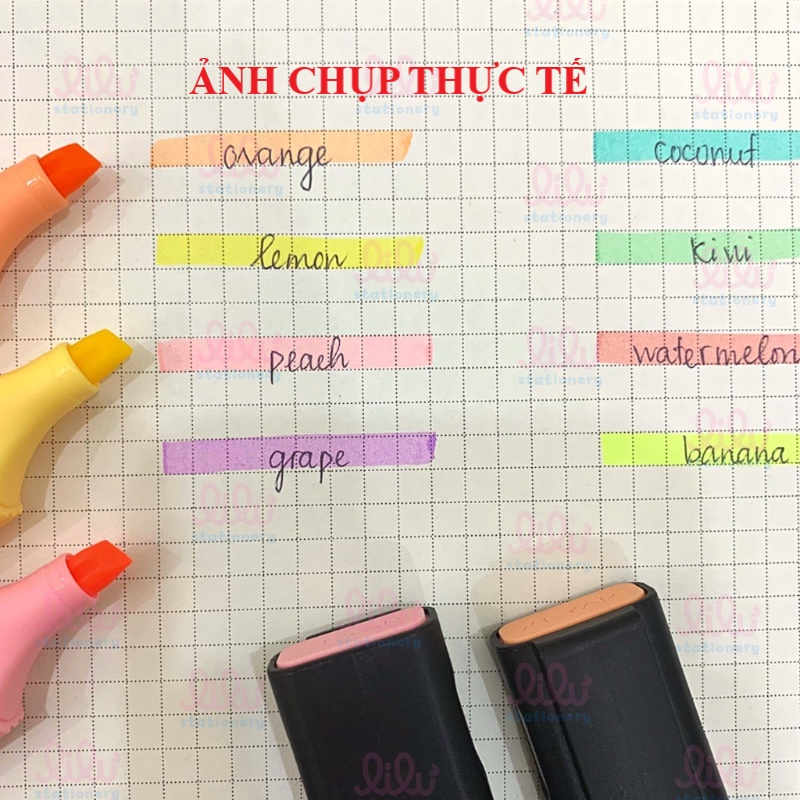 ẢNH CHỤP THỰC TẾ
orange
coconut
lemon
kiwi
peach
watermelon
grape
banana
lilu
stationery